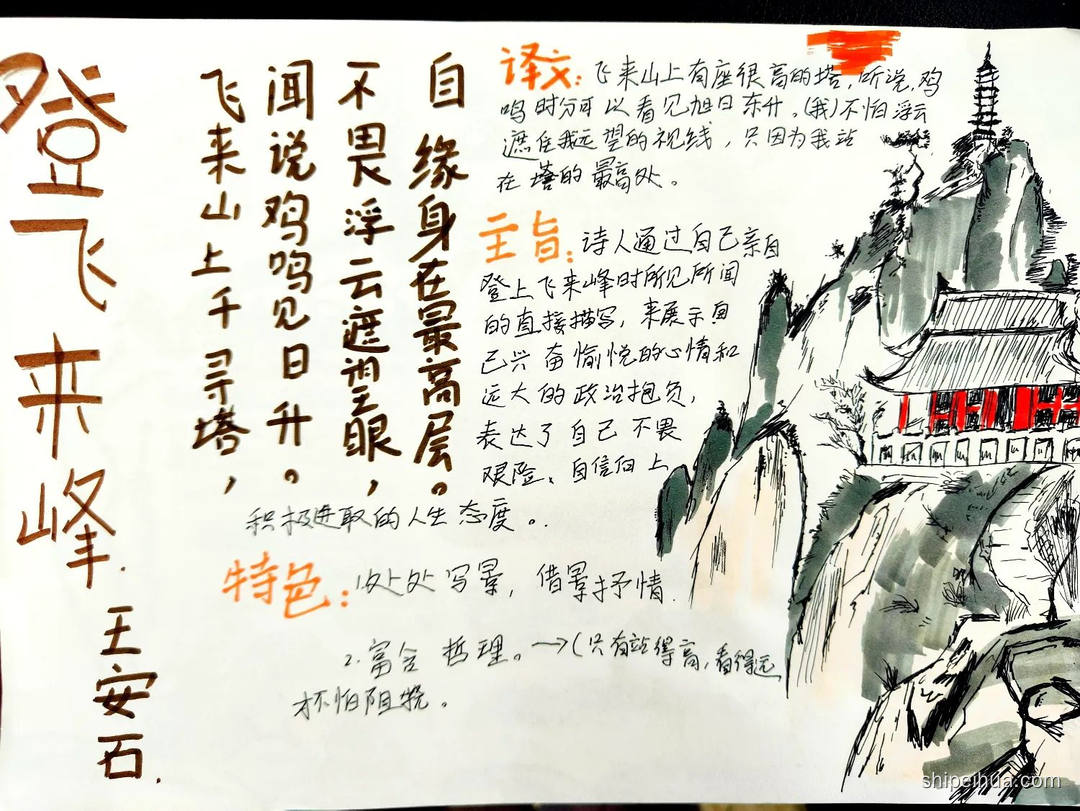 登飞来峰.
王安石.
飞来山上千寻塔，
闻说鸡鸣见日升。
不畏浮云遮望眼，
自缘身在最高层。
译文：飞来山上有座很高的塔，听说，鸡
鸣时分可以看见旭日东升。(我)不怕浮云
遮住我远望的视线，只因为我站
在塔的最高处。
主旨：诗人通过自己亲自
登上飞来峰时所见所闻
的直接描写，来展示自
己兴奋愉悦的心情和
远大的政治抱负，
表达了自己不畏
艰险、自信向上
积极进取的人生态度。.
特色：1.处处写景，借景抒情.
2.富含哲理。→(只有站得高，看得远
才不怕阻挠。
shipeihua.com